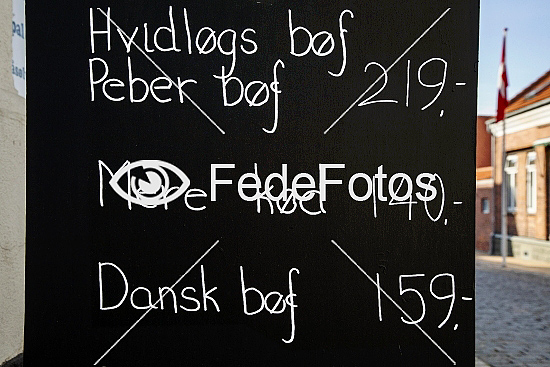 Hvidløgs bøf
Peber bøf 219,-
Mere kød 140,-
FedeFotos
Dansk bøf 159,-